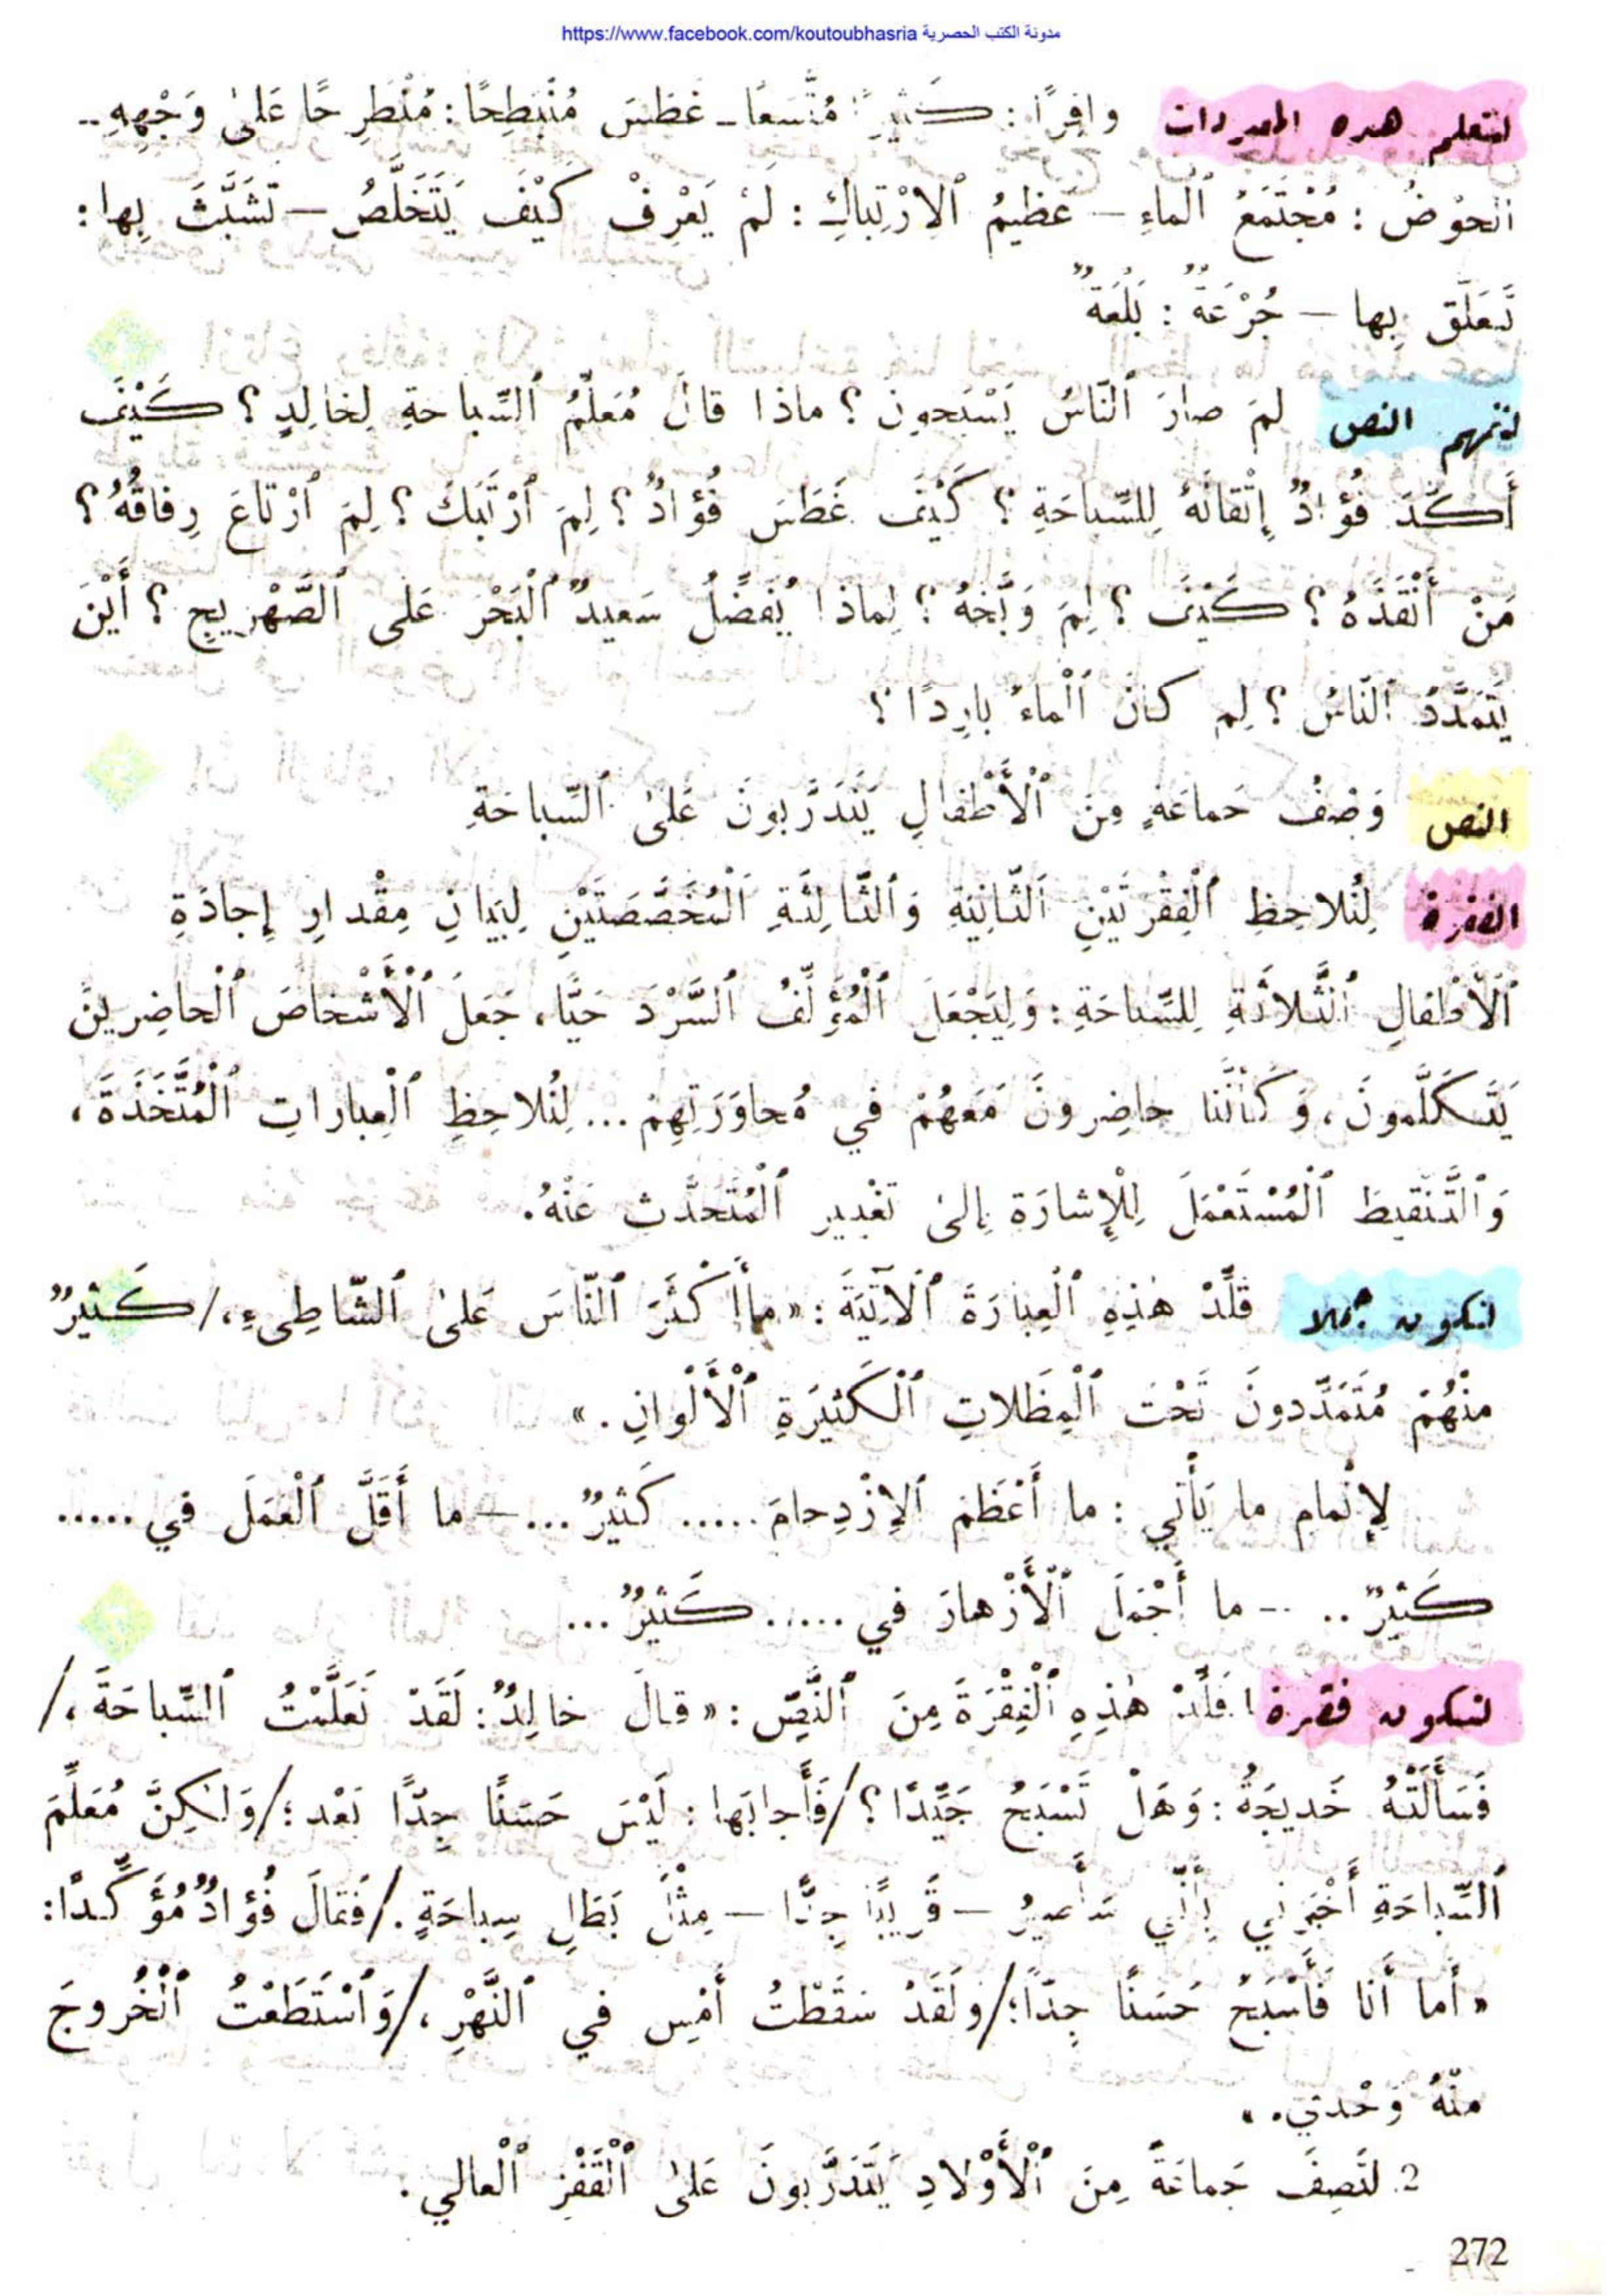 مدونة الكتب الحصرية https://www.facebook.com/koutoubhasria
لنتعلم هذه المفردات وافِرًا : كَثيرًا مُتَّسَعًا ـ غَطَسَ مُنْبَطِحًا : مُنْطَرِحًا عَلىٰ وَجْهِهِ ..
ٱلْحَوْضُ : مُجْتَمَعُ ٱلْماءِ – عَظيمُ ٱلاِرْتِباكِ : لَمْ يَعْرِفْ كَيْفَ يَتَخَلَّصُ – تَشَبَّثَ بِها :
تَعَلَّقَ بِها – جُرْعَةٌ : بَلْعَةٌ
لنفهم النص لِمَ صارَ ٱلنّاسُ يَسْبَحونَ ؟ ماذا قالَ مُعَلِّمُ ٱلسِّباحَةِ لِخالِدٍ ؟ كَيْفَ
أَكَّدَ فُؤادٌ إِتْقانَهُ لِلسِّباحَةِ ؟ كَيْفَ غَطَسَ فُؤادٌ ؟ لِمَ ٱرْتَبَكَ ؟ لِمَ ٱرْتاعَ رِفاقُهُ ؟
مَنْ أَنْقَذَهُ ؟ كَيْفَ ؟ لِمَ وَبَّخَهُ ؟ لِماذا يُفَضِّلُ سَعيدٌ ٱلْبَحْرَ عَلى ٱلصَّهْريجِ ؟ أَيْنَ
يَتَمَدَّدُ ٱلنّاسُ ؟ لِم كانَ ٱلْماءُ بارِدًا ؟
النص وَصْفُ جَماعَةٍ مِنَ ٱلْأَطْفالِ يَتَدَرَّبونَ عَلىٰ ٱلسِّباحَةِ
الفقرة لِنُلاحِظِ ٱلْفِقْرَتَيْنِ ٱلثّانِيَةِ وَٱلثّالِثَةِ ٱلْمُخَصَّصَتَيْنِ لِبَيانِ مِقْدارِ إِجادَةِ
ٱلْأَطْفالِ ٱلثَّلاثَةِ لِلسِّباحَةِ : وَلِيَجْعَلَ ٱلْمُؤَلِّفُ ٱلسَّرْدَ حَيًّا، جَعَلَ ٱلْأَشْخاصَ ٱلْحاضِرينَ
يَتَكَلَّمونَ، وَكَأَنَّنا حاضِرونَ مَعَهُمْ في مُحاوَرَتِهِمْ ... لِنُلاحِظِ ٱلْعِباراتِ ٱلْمُتَّخَذَةَ،
وَٱلتَّنْقيطَ ٱلْمُسْتَعْمَلَ لِلْإِشارَةِ إِلىٰ تَغْييرِ ٱلْمُتَحَدَّثِ عَنْهُ.
لنكون جملا قَلِّدْ هٰذِهِ ٱلْعِبارَةَ ٱلْآتِيَةَ : « ما أَكْثَرَ ٱلنّاسَ عَلىٰ ٱلشّاطِىءِ،/ كَثيرٌ
مِنْهُمْ مُتَمَدِّدونَ تَحْتَ ٱلْمِظَلاتِ ٱلْكَثيرَةِ ٱلْأَلْوانِ . »
لِإِتْمامِ ما يَأْتي : ما أَعْظَمَ ٱلاِزْدِحامَ ..... كَثيرٌ ... – ما أَقَلَّ ٱلْعَمَلَ في .....
كَثيرٌ .. – ما أَجْمَلَ ٱلْأَزْهارَ في ..... كَثيرٌ ...
لنكون فقرة 1 قَلِّدْ هٰذِهِ ٱلْفِقْرَةَ مِنَ ٱلنَّصِّ : « قالَ خالِدٌ : لَقَدْ تَعَلَّمْتُ ٱلسِّباحَةَ،/
فَسَأَلَتْهُ خَديجَةُ : وَهَلْ تَسْبَحُ جَيِّدًا ؟/ فَأَجابَها : لَيْسَ حَسَنًا جِدًّا بَعْد ؛/ وَلٰكِنَّ مُعَلِّمَ
ٱلسِّباحَةِ أَخْبَرَني بِأَنّي سَأَصيرُ – قَريبًا جِدًّا – مِثْلَ بَطَلِ سِباحَةٍ ./ فَقالَ فُؤادٌ مُؤَكِّدًا :
« أَما أَنا فَأَسْبَحُ حَسَنًا جِدًّا ؛/ وَلَقَدْ سَقَطْتُ أَمْسِ في ٱلنَّهْرِ،/ وَٱسْتَطَعْتُ ٱلْخُروجَ
مِنْهُ وَحْدي. »
2. لنَصِفَ جَماعَةً مِنَ ٱلْأَوْلادِ يَتَدَرَّبونَ عَلىٰ ٱلْقَفْزِ ٱلْعالي .
272